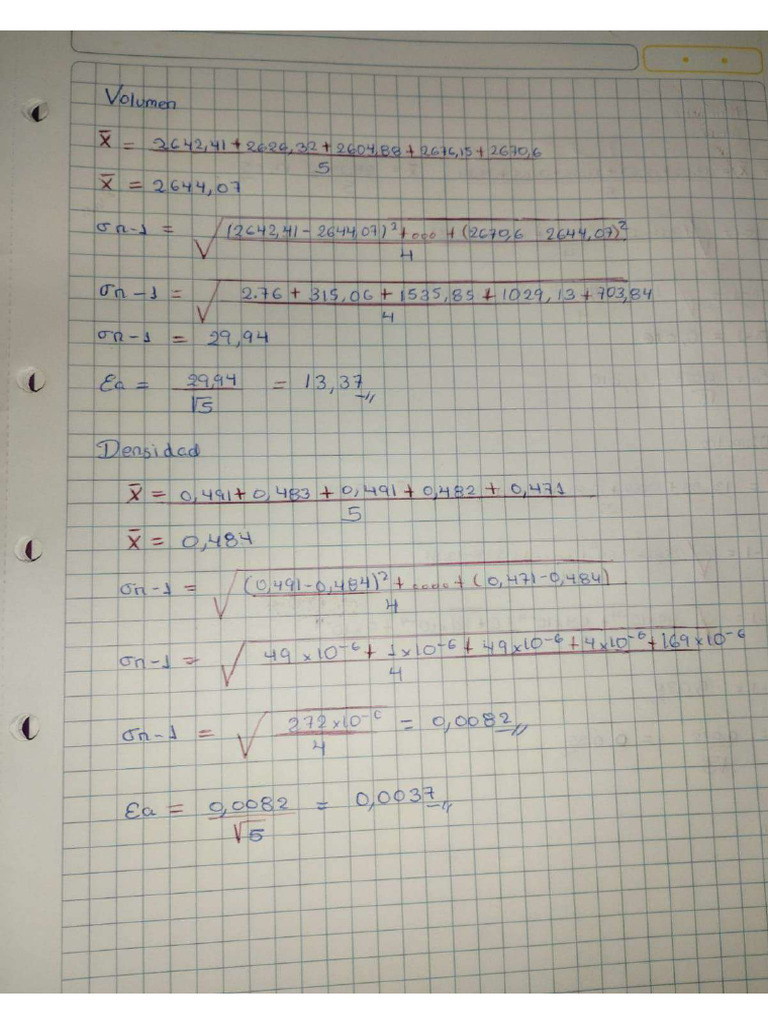 Volumen
x̄ = 2642,41 + 2626,32 + 2604,88 + 2676,15 + 2670,6
5
x̄ = 2644,07
σn-1 = √ (2642,41 - 2644,07)² + ooo + (2670,6 2644,07)²
4
σn-1 = √ 2.76 + 315,06 + 1535,85 + 1029,13 + 703,84
4
σn-1 = 29,94
Ea = 29,94 = 13,37
√5
Densidad
x̄ = 0,491 + 0,483 + 0,491 + 0,482 + 0,471
5
x̄ = 0,484
σn-1 = √ (0,491 - 0,484)² + .... + (0,471 - 0,484)
4
σn-1 = √ 49 x 10⁻⁶ + 1 x 10⁻⁶ + 49 x 10⁻⁶ + 4 x 10⁻⁶ + 169 x 10⁻⁶
4
σn-1 = √ 272 x 10⁻⁶ = 0,0082
4
Ea = 0,0082 = 0,0037
√5